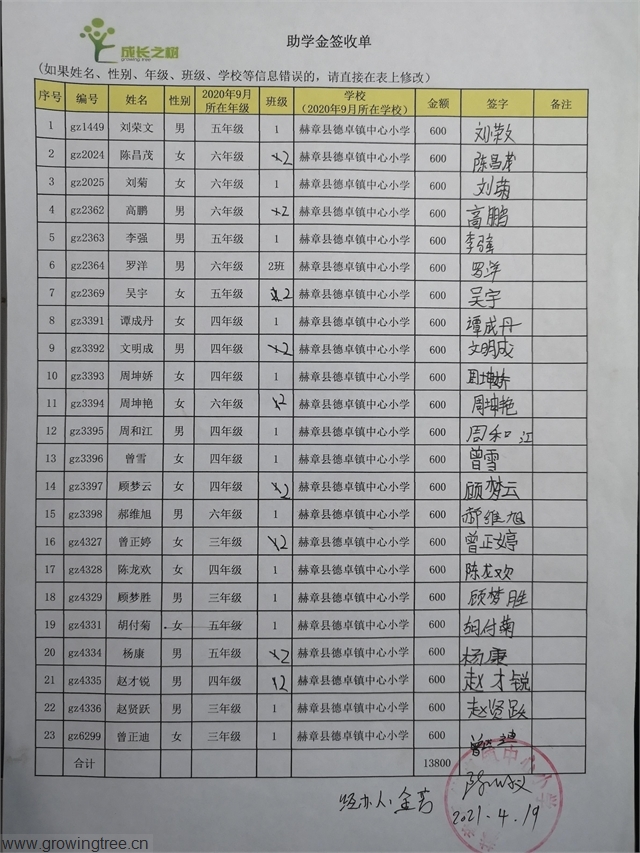 成长之树
growing tree
助学金签收单
(如果姓名、性别、年级、班级、学校等信息错误的,请直接在表上修改)
序号 编号 姓名 性别 2020年9月所在年级 班级 学校(2020年9月所在学校) 金额 签字 备注
1 gz1449 刘荣文 男 五年级 1 赫章县德卓镇中心小学 600 刘荣文
2 gz2024 陈昌茂 女 六年级 2 赫章县德卓镇中心小学 600 陈昌茂
3 gz2025 刘菊 女 六年级 1 赫章县德卓镇中心小学 600 刘菊
4 gz2362 高鹏 男 六年级 2 赫章县德卓镇中心小学 600 高鹏
5 gz2363 李强 男 五年级 1 赫章县德卓镇中心小学 600 李强
6 gz2364 罗洋 男 六年级 2班 赫章县德卓镇中心小学 600 罗洋
7 gz2369 吴宇 女 五年级 2 赫章县德卓镇中心小学 600 吴宇
8 gz3391 谭成丹 女 四年级 1 赫章县德卓镇中心小学 600 谭成丹
9 gz3392 文明成 男 四年级 2 赫章县德卓镇中心小学 600 文明成
10 gz3393 周坤娇 女 四年级 1 赫章县德卓镇中心小学 600 周坤娇
11 gz3394 周坤艳 女 六年级 2 赫章县德卓镇中心小学 600 周坤艳
12 gz3395 周和江 男 四年级 1 赫章县德卓镇中心小学 600 周和江
13 gz3396 曾雪 女 四年级 1 赫章县德卓镇中心小学 600 曾雪
14 gz3397 顾梦云 女 四年级 2 赫章县德卓镇中心小学 600 顾梦云
15 gz3398 郝维旭 男 六年级 1 赫章县德卓镇中心小学 600 郝维旭
16 gz4327 曾正婷 女 三年级 2 赫章县德卓镇中心小学 600 曾正婷
17 gz4328 陈龙欢 女 四年级 1 赫章县德卓镇中心小学 600 陈龙欢
18 gz4329 顾梦胜 男 三年级 1 赫章县德卓镇中心小学 600 顾梦胜
19 gz4331 胡付菊 女 五年级 1 赫章县德卓镇中心小学 600 胡付菊
20 gz4334 杨康 男 五年级 2 赫章县德卓镇中心小学 600 杨康
21 gz4335 赵才锐 男 四年级 2 赫章县德卓镇中心小学 600 赵才锐
22 gz4336 赵贤跃 男 三年级 1 赫章县德卓镇中心小学 600 赵贤跃
23 gz6299 曾正迪 女 三年级 1 赫章县德卓镇中心小学 600
合计 13800
经办人:金
2021.4.19
www.growingtree.cn